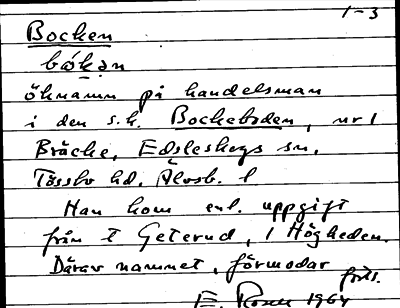 1-3
Bocken
bókən
öknamn på handelsman
i den s.k. Bockeboden, nr 1
Bräcke, Edsleskogs sn,
Tössbo hd. Älvsb. l
Han kom enl. uppgift
från t Geterud, i Högheden.
Därav namnet, förmodar
forts.
E. 1964